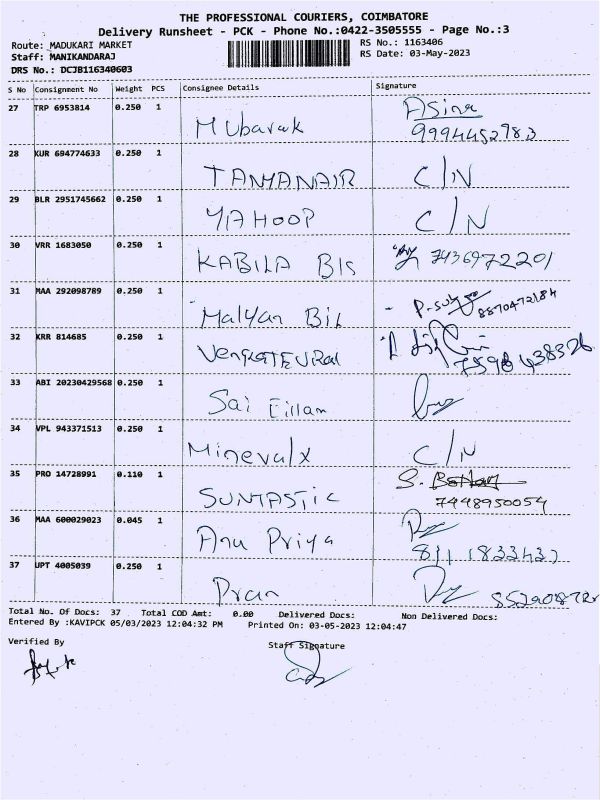 THE PROFESSIONAL COURIERS, COIMBATORE
Delivery Runsheet - PCK - Phone No.:0422-3505555 - Page No.:3
Route: MADUKARI MARKET
RS No.: 1163406
Staff: MANIKANDARAJ
RS Date: 03-May-2023
DRS No.: DCJB116340603
S No Consignment No Weight PCS Consignee Details Signature
27 TRP 6953814 0.250 1 Mubarak Asina
9994452983
28 KUR 694774633 0.250 1 TANYANAIR C/N
29 BLR 2951745662 0.250 1 YAHOOP C/N
30 VRR 1683050 0.250 1 KABILA BIS 7436972201
31 MAA 292098789 0.250 1 Malyan Bil 8870472184
32 KRR 814685 0.250 1
33 ABI 20230429568 0.250 1 Sai
34 VPL 943371513 0.250 1 Minevalx C/N
35 PRO 14728991 0.110 1 SUNTASTIC
7448950054
36 MAA 600029023 0.045 1 Anu Priya
37 UPT 4005039 0.250 1 Pran
Total No. Of Docs: 37 Total COD Amt: 0.00 Delivered Docs: Non Delivered Docs:
Entered By :KAVIPCK 05/03/2023 12:04:32 PM Printed On: 03-05-2023 12:04:47
Verified By
Staff Signature